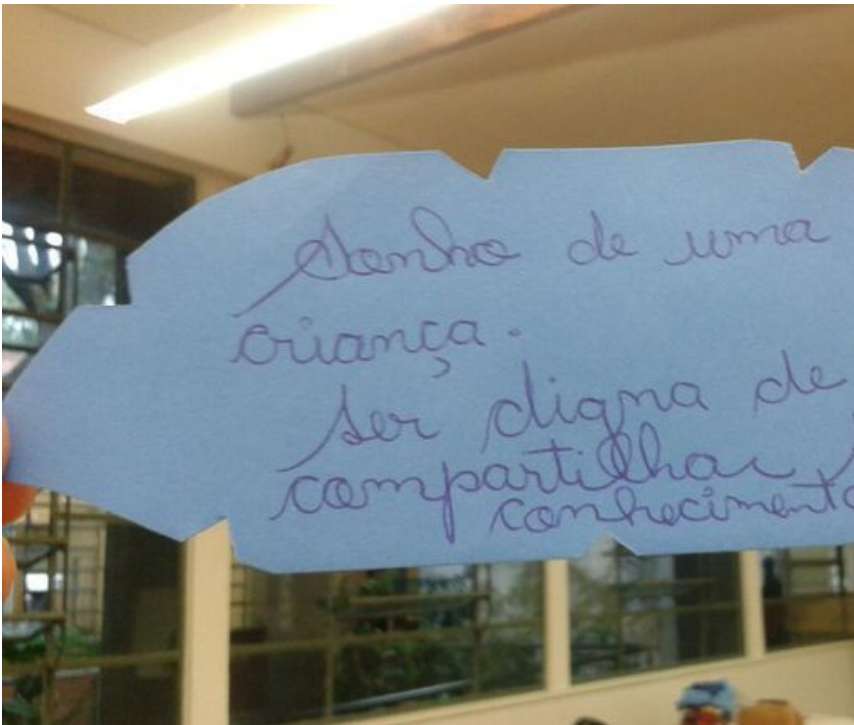 Sonho de uma
criança.
Ser digna de
compartilhar
conhecimento